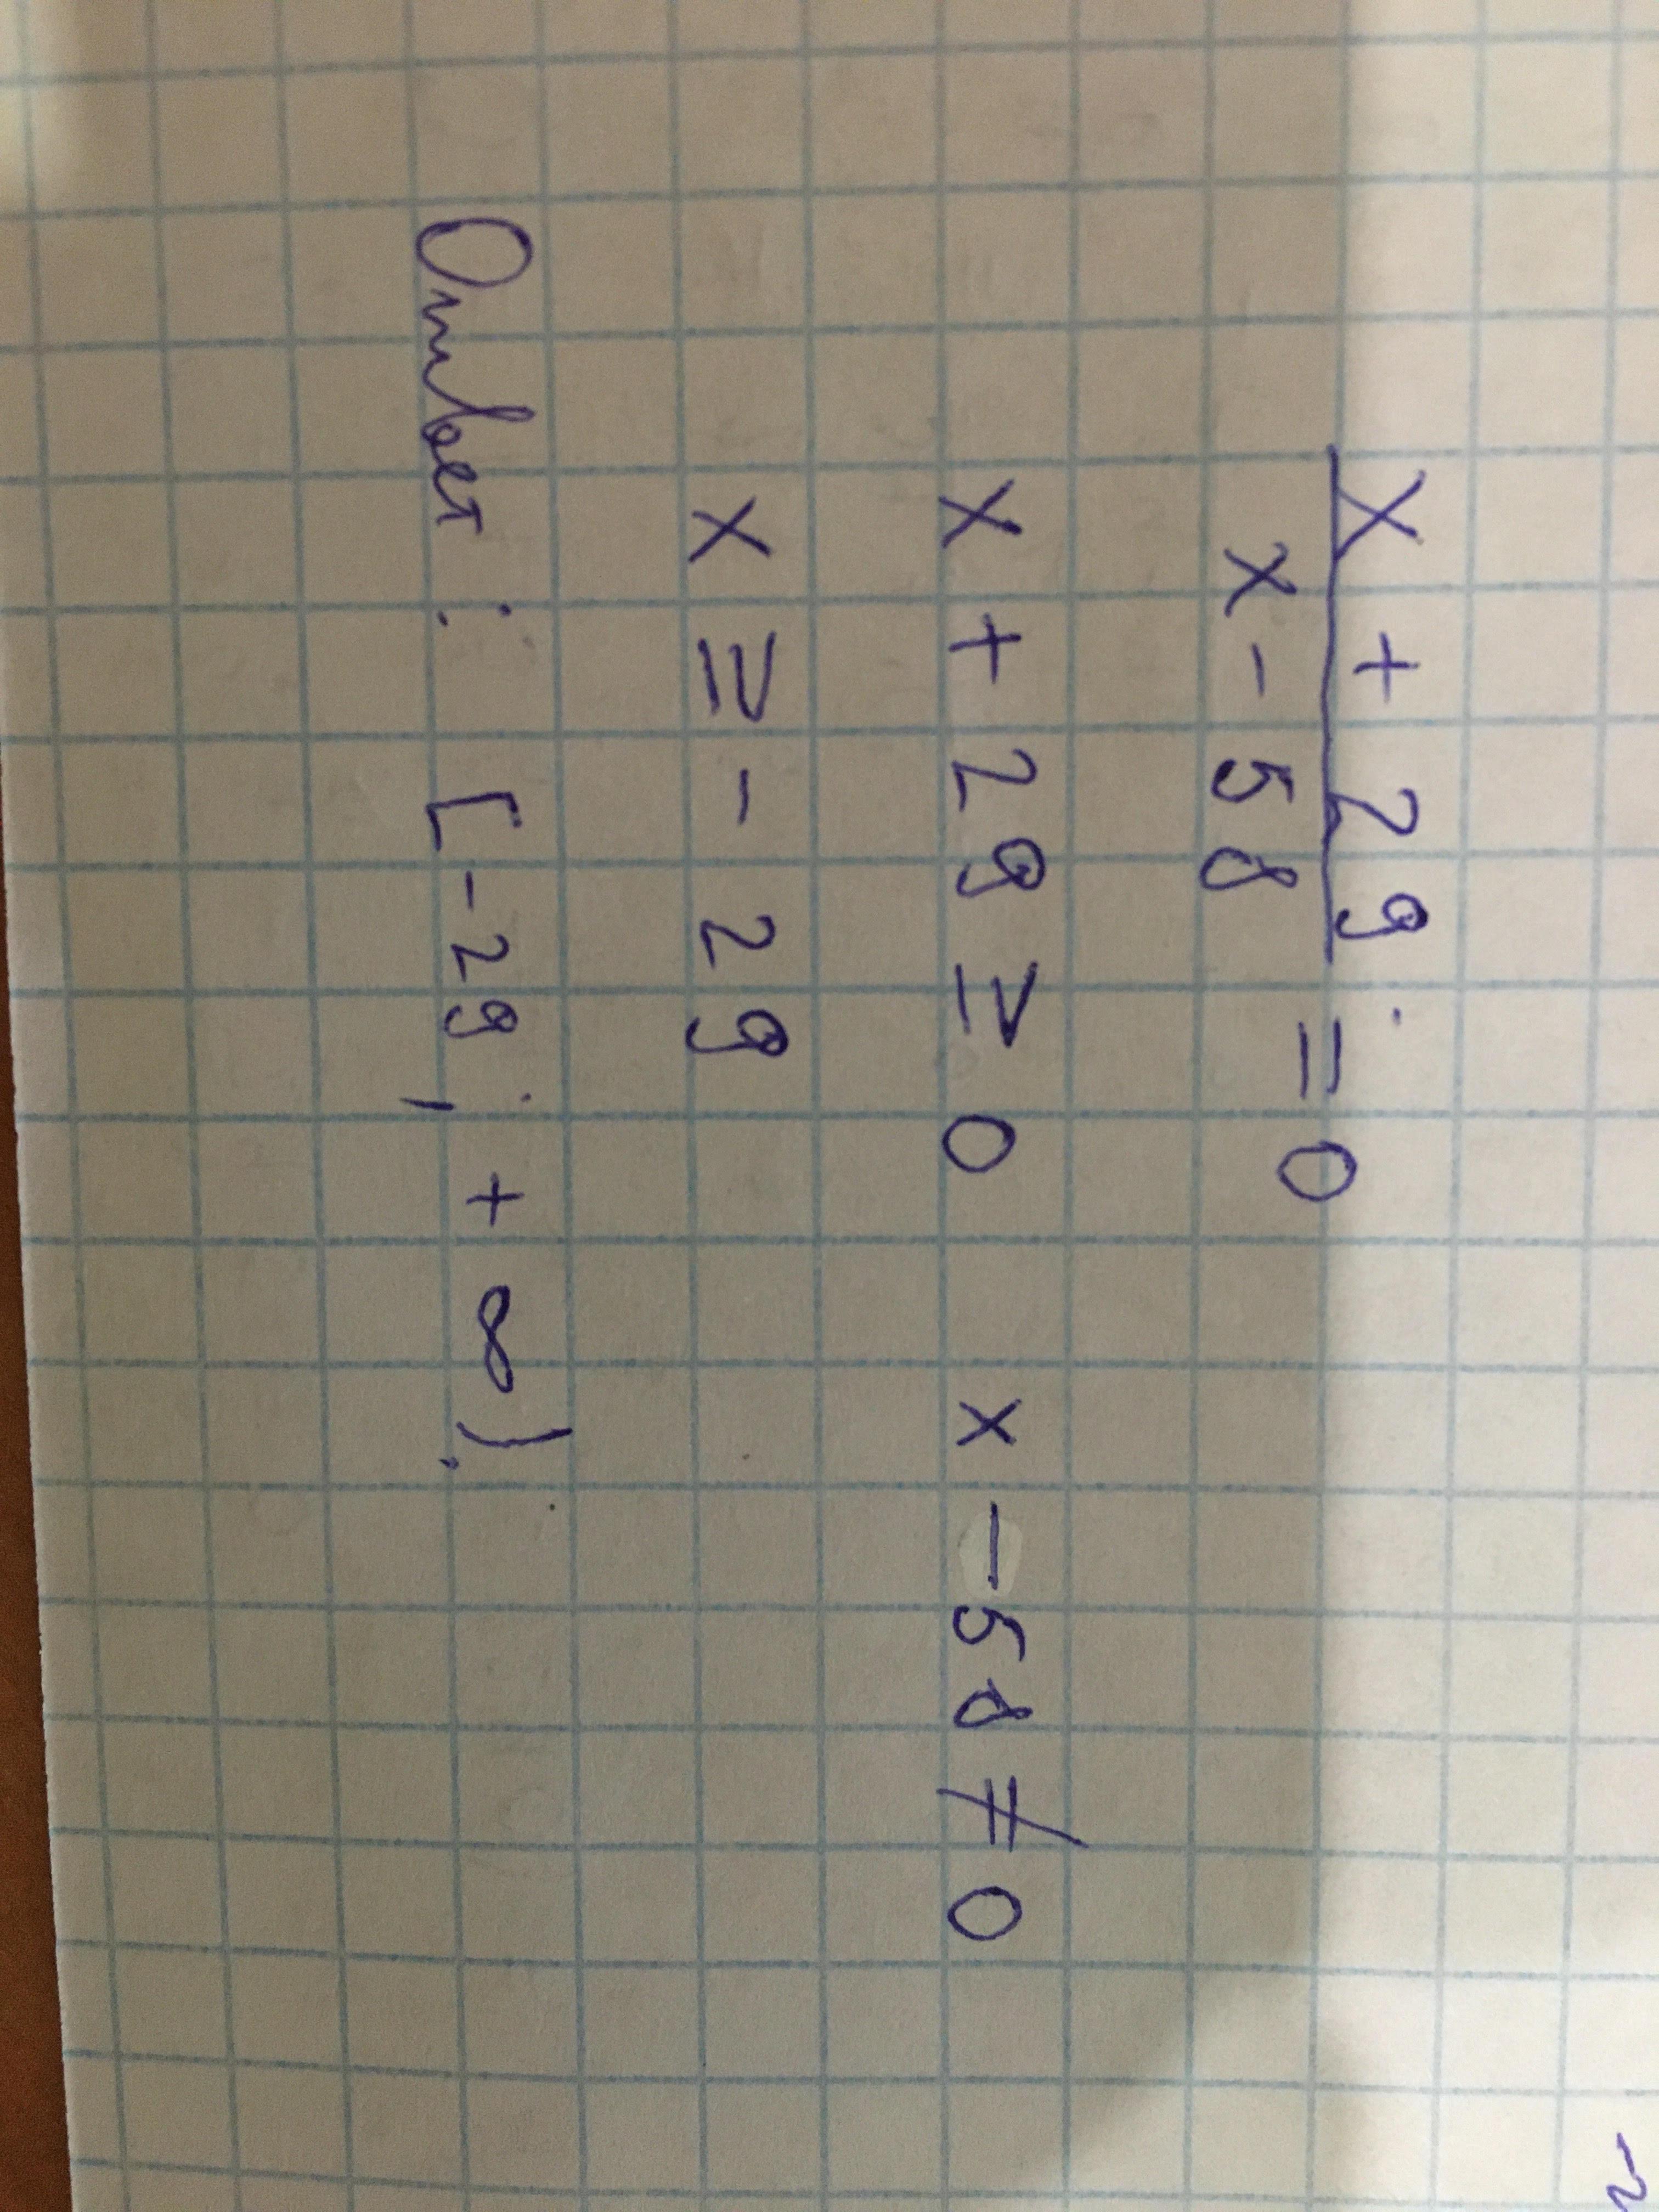 x + 29 = 0
x - 58
x + 29 ≥ 0 x - 58 ≠ 0
x ≥ - 29
Ответ : [-29; + ∞).